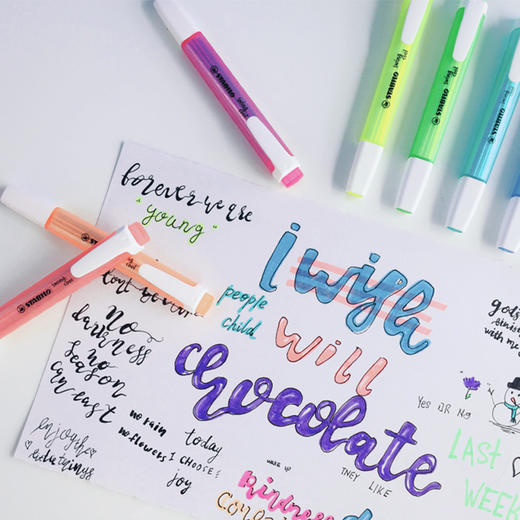 STABILO swing cool
STABILO swing cool
STABILO swing cool
STABILO
STABILO swing cool
STABILO swing cool
forever we are
"young"
i wish
will
chocolate
people
child
no
darkness
no
season
can last
enjoy the
little things
no rain
no flowers
today
I CHOOSE
joy
WAKE UP
kindness
THEY LIKE
Yes OR No
LAST
WEEK
gods
with me